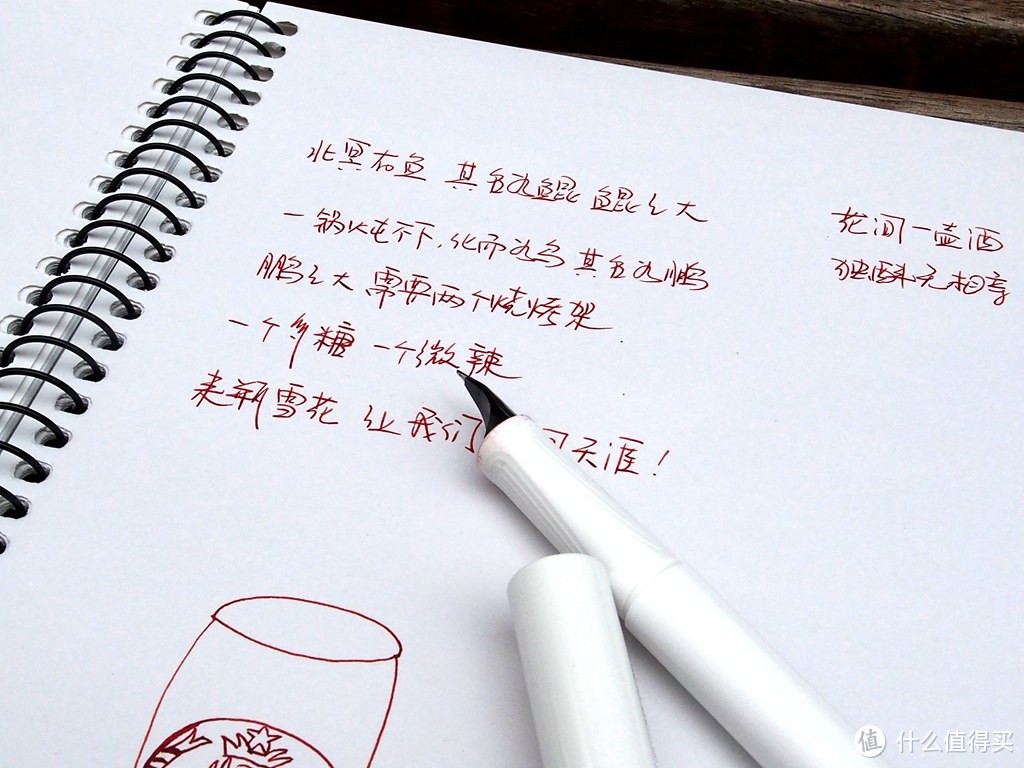 北冥有鱼 其名为鲲 鲲之大
一锅炖不下，化而为鸟 其名为鹏
鹏之大 需要两个烧烤架
一个多糖 一个微辣
来瓶雪花 让我们 天涯！
花间一壶酒
独酌无相亲
值 什么值得买